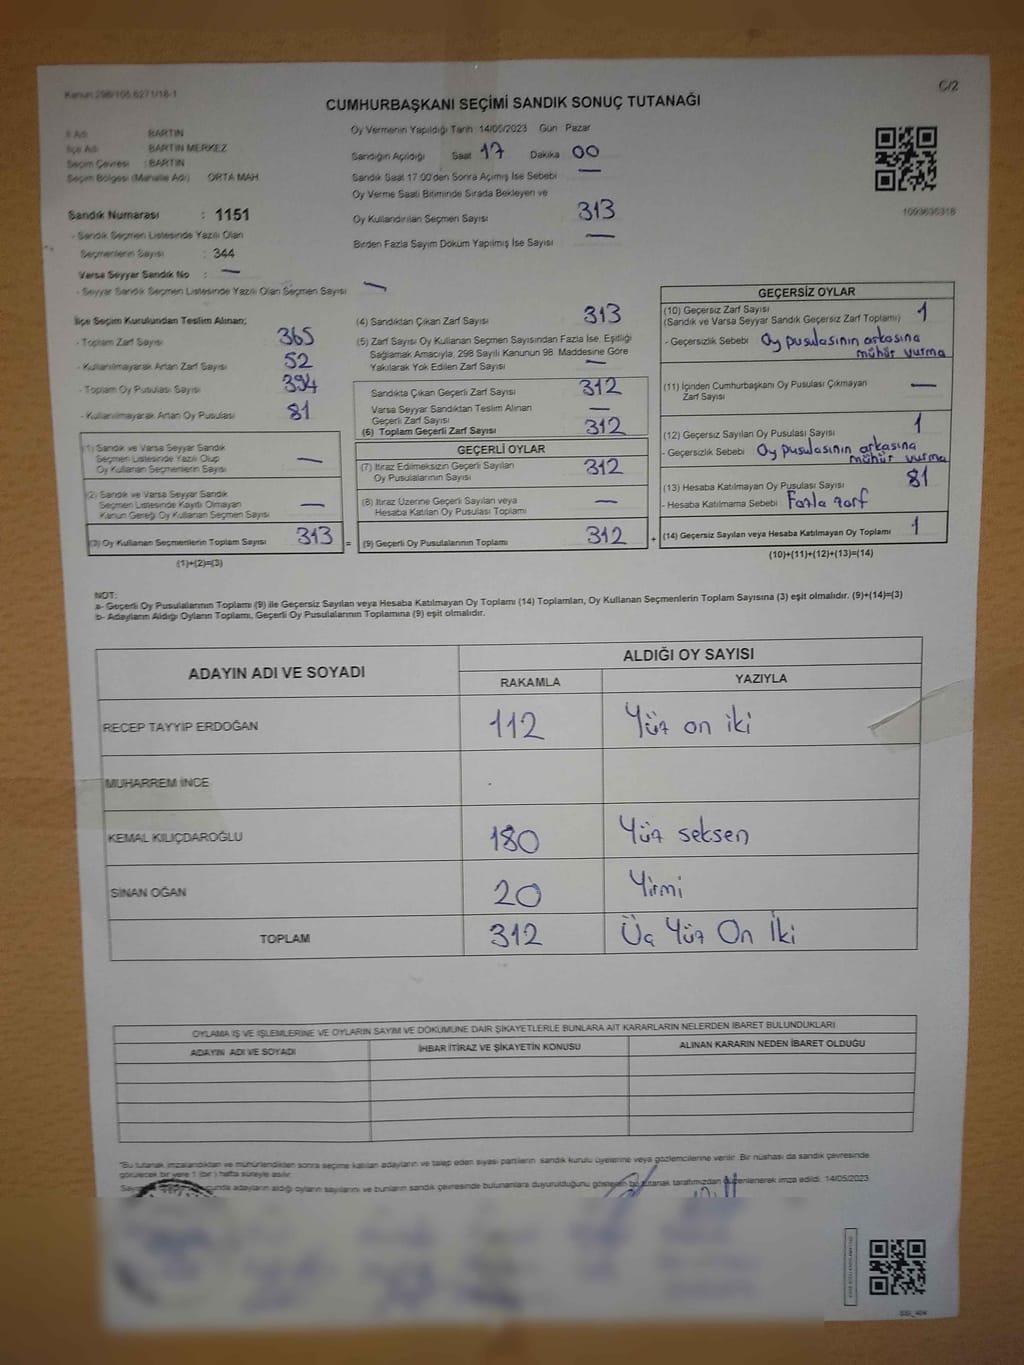 Kanun:298/105,6271/18-1
C/2
CUMHURBAŞKANI SEÇİMİ SANDIK SONUÇ TUTANAĞI
İl Adı BARTIN
İlçe Adı BARTIN MERKEZ
Seçim Çevresi : BARTIN
Seçim Bölgesi (Mahalle Adı) ORTA MAH.
Sandık Numarası : 1151
- Sandık Seçmen Listesinde Yazılı Olan
Seçmenlerin Sayısı : 344
Varsa Seyyar Sandık No : —
- Seyyar Sandık Seçmen Listesinde Yazılı Olan Seçmen Sayısı —
Oy Vermenin Yapıldığı Tarih 14/05/2023 Gün Pazar
Sandığın Açıldığı Saat 17 Dakika 00
Sandık Saat 17:00'den Sonra Açılmış İse Sebebi —
Oy Verme Saati Bitiminde Sırada Bekleyen ve
Oy Kullandırılan Seçmen Sayısı 313
Birden Fazla Sayım Döküm Yapılmış İse Sayısı —
1099635318
İlçe Seçim Kurulundan Teslim Alınan;
- Toplam Zarf Sayısı 365
- Kullanılmayarak Artan Zarf Sayısı 52
- Toplam Oy Pusulası Sayısı 394
- Kullanılmayarak Artan Oy Pusulası 81
(1) Sandık ve Varsa Seyyar Sandık
Seçmen Listesinde Yazılı Olup
Oy Kullanan Seçmenlerin Sayısı —
(2) Sandık ve Varsa Seyyar Sandık
Seçmen Listesinde Kayıtlı Olmayan
Kanun Gereği Oy Kullanan Seçmen Sayısı —
(3) Oy Kullanan Seçmenlerin Toplam Sayısı 313 =
(1)+(2)=(3)
(4) Sandıktan Çıkan Zarf Sayısı 313
(5) Zarf Sayısı Oy Kullanan Seçmen Sayısından Fazla İse, Eşitliği
Sağlamak Amacıyla, 298 Sayılı Kanunun 98. Maddesine Göre
Yakılarak Yok Edilen Zarf Sayısı —
Sandıkta Çıkan Geçerli Zarf Sayısı 312
Varsa Seyyar Sandıktan Teslim Alınan
Geçerli Zarf Sayısı —
(6) Toplam Geçerli Zarf Sayısı 312
GEÇERLİ OYLAR
(7) İtiraz Edilmeksizin Geçerli Sayılan
Oy Pusulalarının Sayısı 312
(8) İtiraz Üzerine Geçerli Sayılan veya
Hesaba Katılan Oy Pusulası Toplamı —
(9) Geçerli Oy Pusulalarının Toplamı 312 +
GEÇERSİZ OYLAR
(10) Geçersiz Zarf Sayısı
(Sandık ve Varsa Seyyar Sandık Geçersiz Zarf Toplamı) 1
- Geçersizlik Sebebi Oy pusulasının arkasına
mühür vurma
(11) İçinden Cumhurbaşkanı Oy Pusulası Çıkmayan
Zarf Sayısı —
(12) Geçersiz Sayılan Oy Pusulası Sayısı 1
- Geçersizlik Sebebi Oy pusulasının arkasına
mühür vurma
(13) Hesaba Katılmayan Oy Pusulası Sayısı 81
- Hesaba Katılmama Sebebi Fazla zarf
(14) Geçersiz Sayılan veya Hesaba Katılmayan Oy Toplamı 1
(10)+(11)+(12)+(13)=(14)
NOT:
a- Geçerli Oy Pusulalarının Toplamı (9) ile Geçersiz Sayılan veya Hesaba Katılmayan Oy Toplamı (14) Toplamları, Oy Kullanan Seçmenlerin Toplam Sayısına (3) eşit olmalıdır. (9)+(14)=(3)
b- Adayların Aldığı Oyların Toplamı, Geçerli Oy Pusulalarının Toplamına (9) eşit olmalıdır.
ADAYIN ADI VE SOYADI ALDIĞI OY SAYISI
RAKAMLA YAZIYLA
RECEP TAYYİP ERDOĞAN 112 Yüz on iki
MUHARREM İNCE -
KEMAL KILIÇDAROĞLU 180 Yüz seksen
SİNAN OĞAN 20 Yirmi
TOPLAM 312 Üç Yüz On İki
OYLAMA İŞ VE İŞLEMLERİNE VE OYLARIN SAYIM VE DÖKÜMÜNE DAİR ŞİKAYETLERLE BUNLARA AİT KARARLARIN NELERDEN İBARET BULUNDUKLARI
ADAYIN ADI VE SOYADI İHBAR İTİRAZ VE ŞİKAYETİN KONUSU ALINAN KARARIN NEDEN İBARET OLDUĞU
"Bu tutanak imzalandıktan ve mühürlendikten sonra seçime katılan adayların ve talep eden siyasi partilerin sandık kurulu üyelerine veya gözlemcilerine verilir. Bir nüshası da sandık çevresinde
görülecek bir yere 1 (bir) hafta süreyle asılır.
adayların aldığı oyların sayılarını ve bunların sandık çevresinde bulunanlara duyurulduğunu gösteren bu tutanak tarafımızdan düzenlenerek imza edildi. 14/05/2023